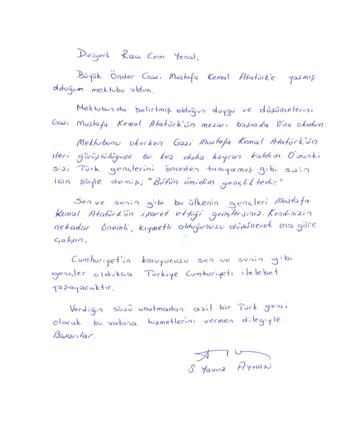 Değerli Rıza Cem Yenal;
Büyük Önder Gazi Mustafa Kemal Atatürk'e yazmış
olduğun mektubu aldım.
Mektubunda belirtmiş olduğun duygu ve düşüncelerini
Gazi Mustafa Kemal Atatürk'ün mezarı başında O'na okudum.
Mektubunu okurken Gazi Mustafa Kemal Atatürk'ün
ileri görüşlülüğüne bir kez daha hayran kaldım. O sanki
sizi Türk gençlerini önceden tanıyormuş gibi sizin
için şöyle demiş; "Bütün ümidim gençliktedir."
Sen ve senin gibi bu ülkenin gençleri Mustafa
Kemal Atatürk'ün işaret ettiği gençlersiniz. Kendinizin
nekadar önemli, kıymetli olduğunuzu düşünerek ona göre
çalışın.
Cumhuriyet'in koruyucusu sen ve senin gibi
gençler oldukça Türkiye Cumhuriyeti ilelebet
yaşayacaktır.
Verdiğin sözü unutmadan asil bir Türk genci
olarak bu vatana hizmetlerini vermen dileğiyle.
Başarılar.
S. Yavuz AYHAN